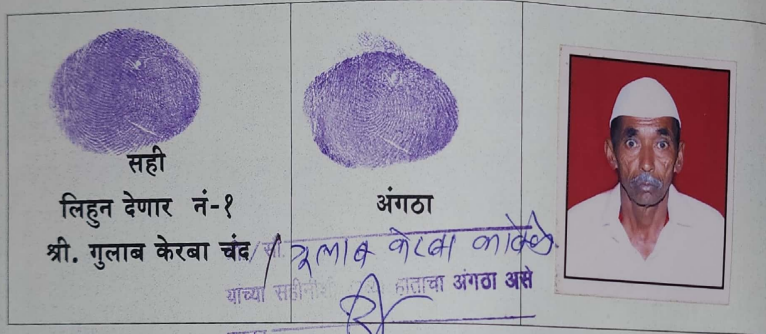 सही
लिहुन देणार नं-१
अंगठा
श्री. गुलाब केरबा चंद
गुलाब केरबा कांबळे
यांच्या सहीनीशी हाताचा अंगठा असे